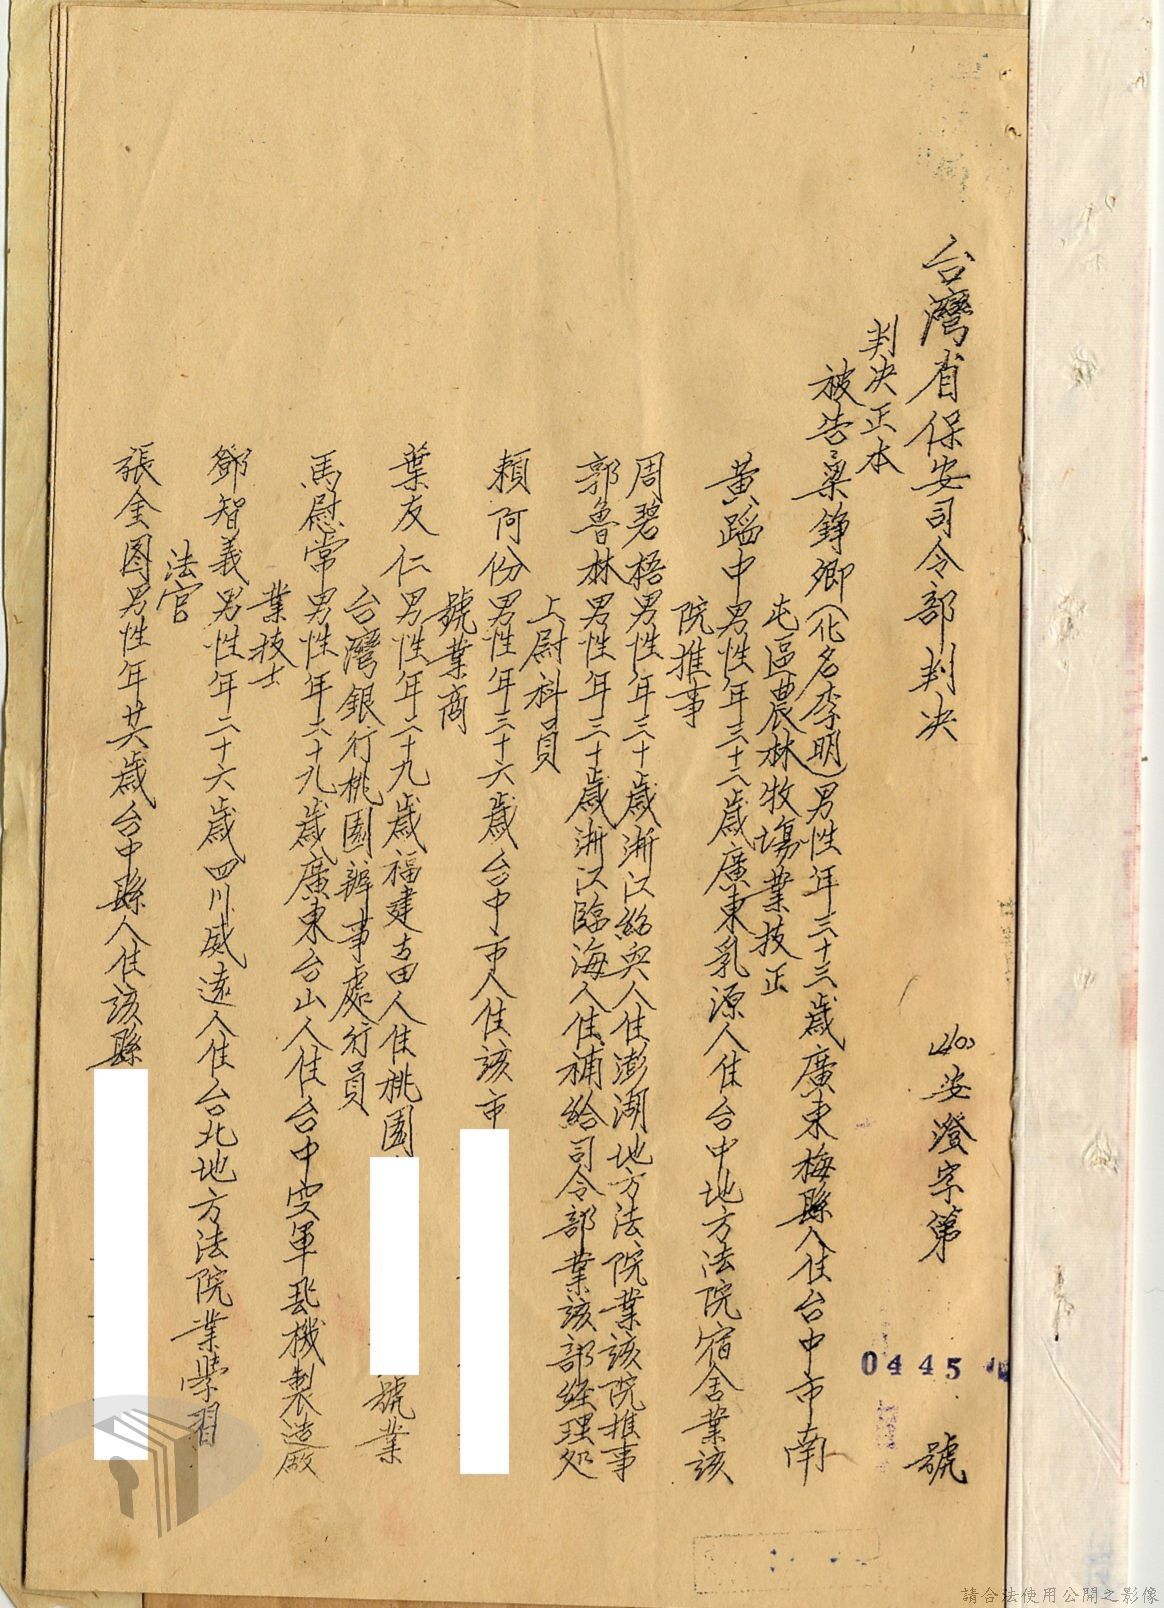 台灣省保安司令部判決
(40)安澄字第0445號
判決正本
被告：梁錚卿(化名李明)男性年三十三歲廣東梅縣人住台中市南
屯區農林牧場業技正
黃蹈中男性年三十二歲廣東乳源人住台中地方法院宿舍業該
院推事
周碧梧男性年三十歲浙江紹興人住澎湖地方法院業該院推事
郭魯林男性年三十歲浙江臨海人住補給司令部業該部經理処
上尉科員
賴阿份男性年三十六歲台中市人住該市
號業商
葉友仁男性年二十九歲福建古田人住桃園 號業
台灣銀行桃園辦事處行員
馬慰常男性年二十九歲廣東台山人住台中空軍飛機製造廠
業技士
鄧智義男性年二十六歲四川威遠人住台北地方法院業學習
法官
張金国男性年廿六歲台中縣人住該縣
請合法使用公開之影像